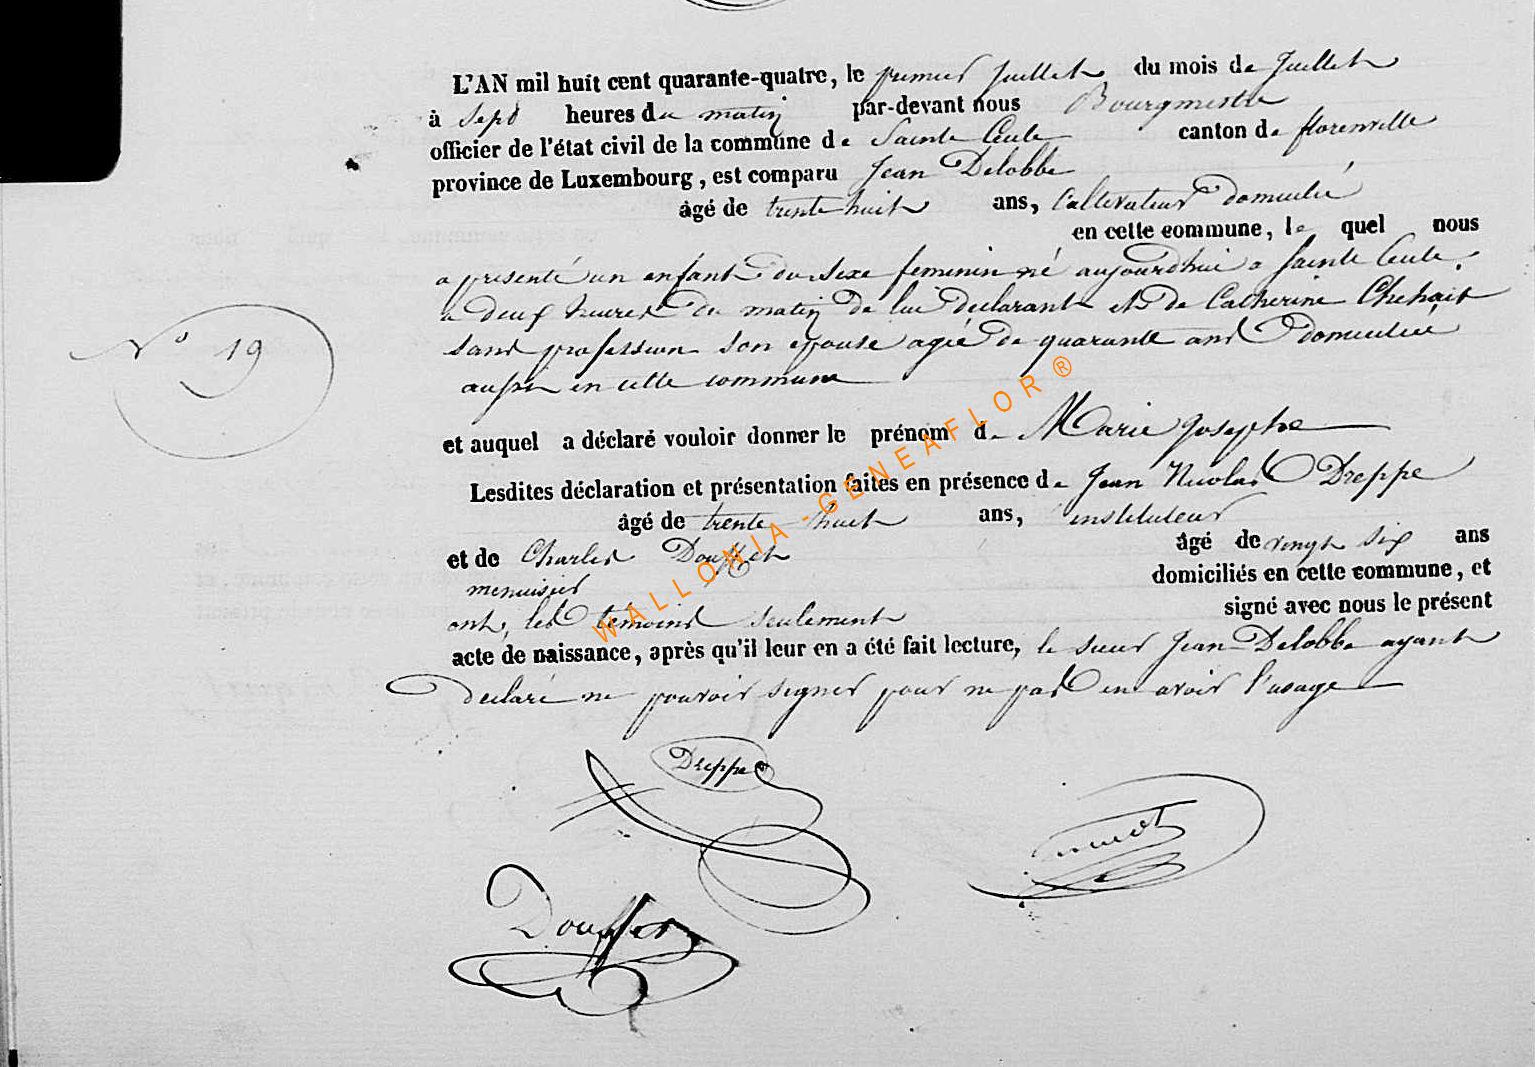 L'AN mil huit cent quarante-quatre, le premier juillet du mois de Juillet
à sept heures du matin par-devant nous Bourgmestre
officier de l'état civil de la commune de Sainte Cecile canton de florenville
province de Luxembourg, est comparu Jean Delobbe
âgé de trente huit ans, Cultivateur domicilié
en cette commune, le quel nous
a presenté un enfant du sexe feminin né aujourd'hui a Sainte Cecile
a deux heures du matin de lui déclarant et de Catherine Chehait
N° 19
sans profession son epouse agée de quarante ans domiciliée
aussi en cette commune
et auquel a déclaré vouloir donner le prénom de Marie Josephe
Lesdites déclaration et présentation faites en présence de Jean Nicolas Dreppe
âgé de trente huit ans, instituteur
et de Charles Douffet âgé de vingt six ans
menuisier domiciliés en cette commune, et
ont, les témoins seulement signé avec nous le présent
acte de naissance, après qu'il leur en a été fait lecture, le sieur Jean Delobbe ayant
declaré ne pouvoir signer pour ne pas en avoir l'usage
Dreppe
Douffet
WALLONIA-GENEAFLOR ®